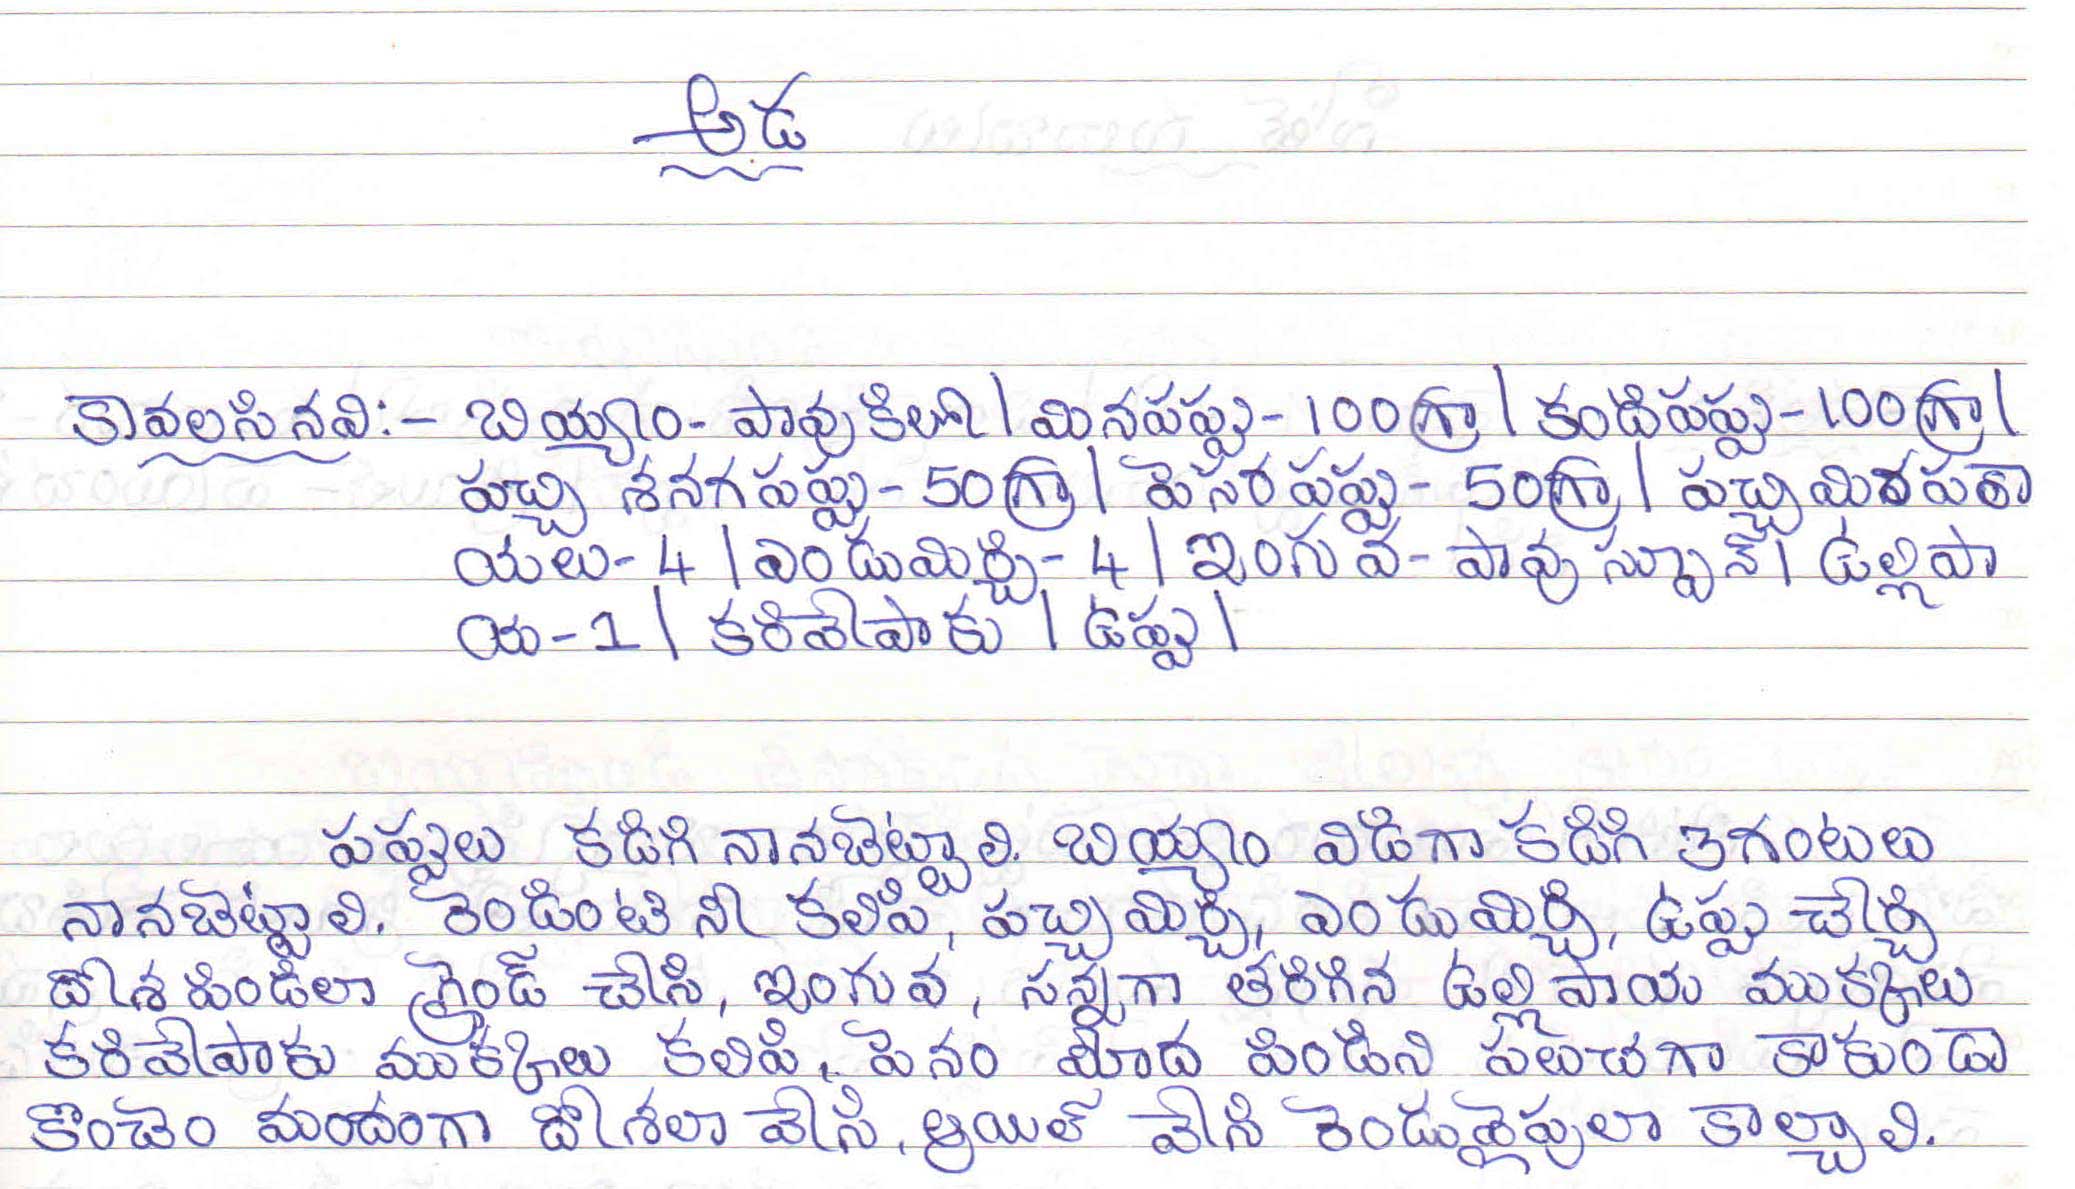 అడ
కావలసినవి:- బియ్యం- పావుకిలో | మినపప్పు- 100గ్రా | కందిపప్పు-100గ్రా |
పచ్చి శనగపప్పు-50గ్రా | పెసరపప్పు- 50గ్రా | పచ్చిమిరపకా
యలు- 4 | ఎండుమిర్చి- 4 | ఇంగువ- పావుస్పూన్ | ఉల్లిపా
య-1 | కరివేపాకు | ఉప్పు |
పప్పులు కడిగి నానబెట్టాలి. బియ్యం విడిగా కడిగి 3గంటలు
నానబెట్టాలి. రెండింటిని కలిపి, పచ్చిమిర్చి, ఎండుమిర్చి, ఉప్పు చేర్చి
దోశపిండిలా గ్రైండ్ చేసి, ఇంగువ, సన్నగా తరిగిన ఉల్లిపాయ ముక్కలు
కరివేపాకు ముక్కలు కలిపి, పెనం మీద పిండిని పలుచగా కాకుండా
కొంచెం మందంగా దోశలా వేసి, ఆయిల్ వేసి రెండువైపులా కాల్చాలి.